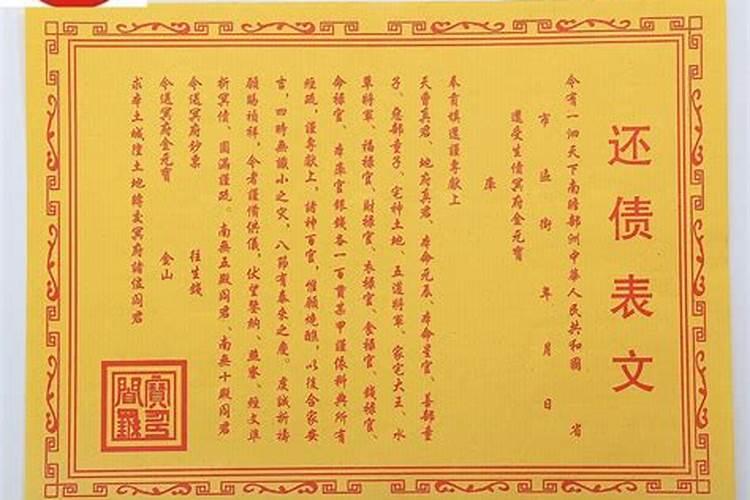 还债表文
今有一泗天下南瞻部洲中华人民共和國 省
市 區 街 年 月 日
還受生債冥府金元寶
庫
奉肯填還謹專獻上
天曹真君、地府真君、本命元辰、本命星官、善部童
子、惡部童子、宅神土地、五道將軍、家宅大王、水
草將軍、福祿官、財祿官、衣祿官、食祿官、錢祿官、
命祿官、本庫官銀錢各一百貫某甲謹依科典所有
經疏，謹專獻上，諸神百官，惟願燒醮，以後合家安
言，四時無識小之灾，八節有泰來之慶。虔誠祈禱
願賜禎祥，令者謹備供儀，伏望鑒納、經文準
析冥債、圓滿謹疏。南無五殿閻君、南無十殿閻君
今送冥府鈔票 往生錢
令送冥府金元寶 金山
求本土城隍土地轉交冥府諸位閻君